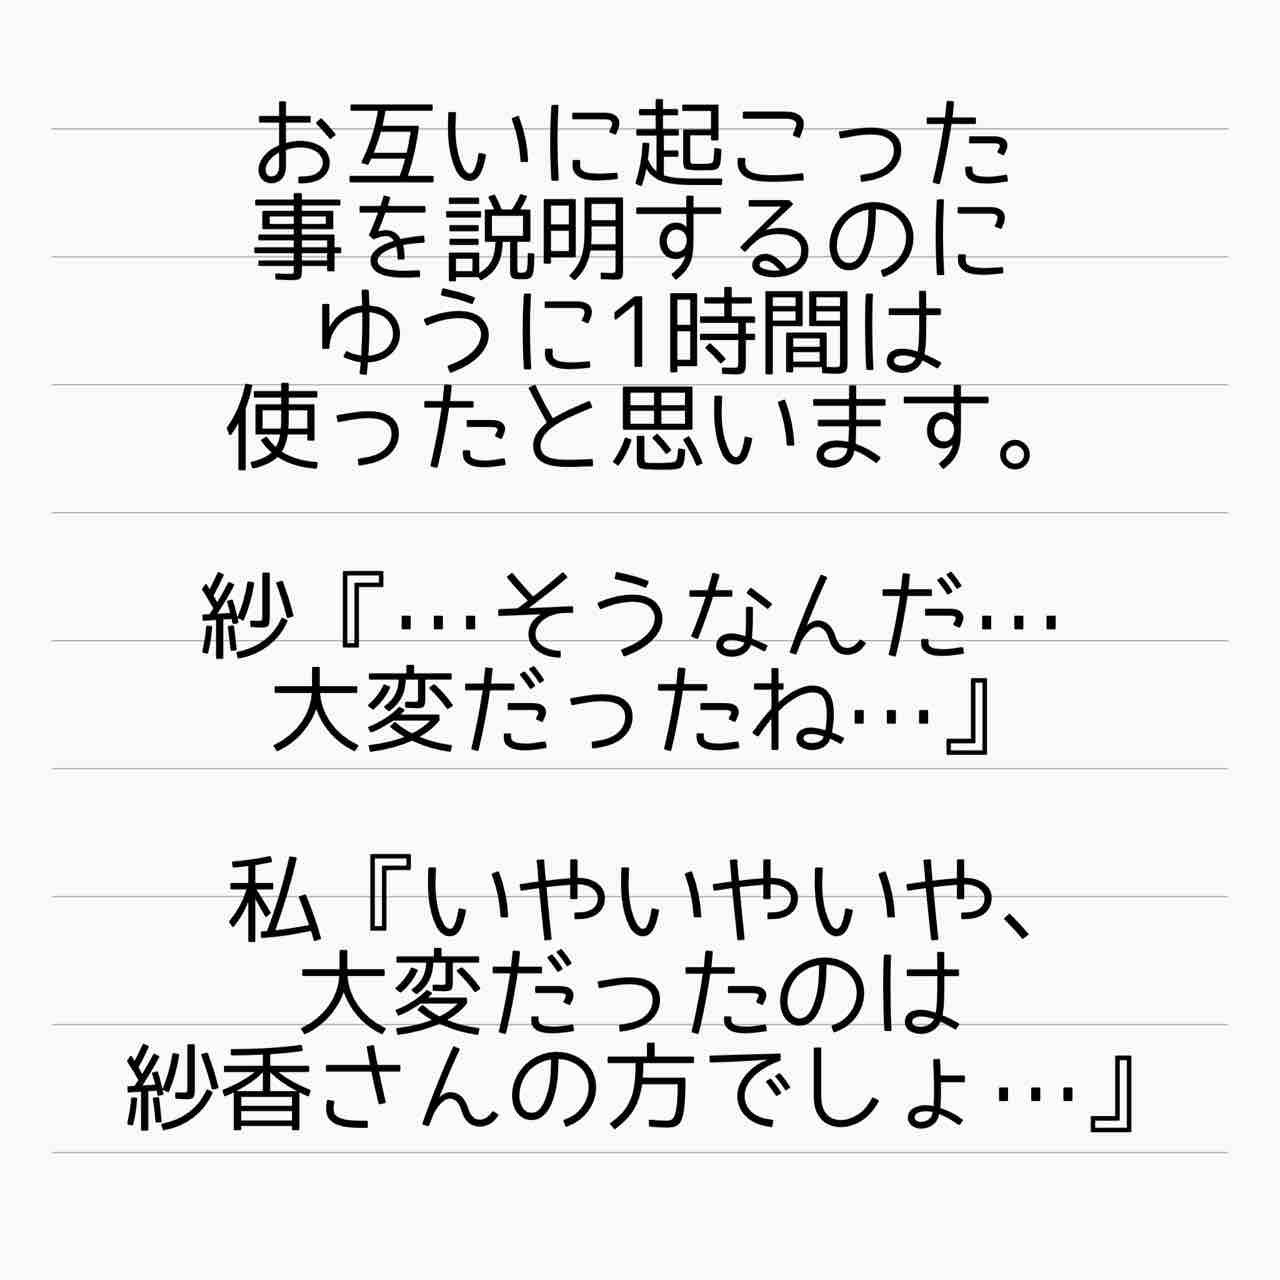 お互いに起こった
事を説明するのに
ゆうに1時間は
使ったと思います。
紗『…そうなんだ…
大変だったね…』
私『いやいやいや、
大変だったのは
紗香さんの方でしょ…』